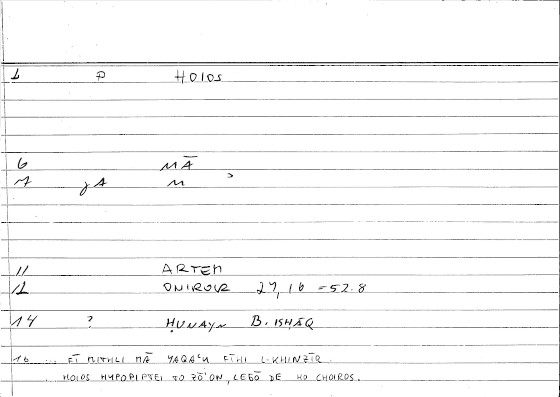 1 P HOIOS
6 MĀ
7 JA M
11 ARTEM
12 ONIROCR 27, 16 = 52.8
14 ? ḤUNAYN B. ISḤĀQ
16 ... FĪ MITHLI MĀ YAQAʿU FĪHI L-KHINZĪR
... HOIOS HYPOPIPTEI TO ZŌ'ON, LEGŌ DE HO CHOIROS.